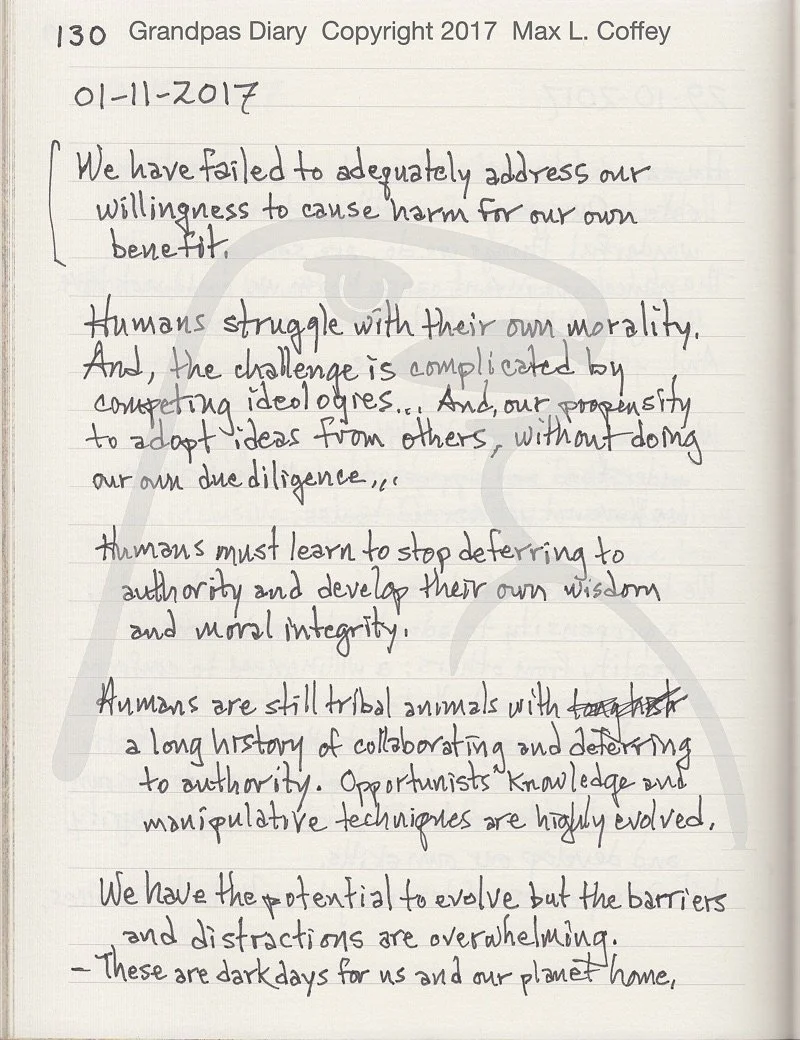 130 Grandpas Diary Copyright 2017 Max L. Coffey
01-11-2017
We have failed to adequately address our
willingness to cause harm for our own
benefit.
Humans struggle with their own morality.
And, the challenge is complicated by
competing ideologies... And, our propensity
to adopt ideas from others, without doing
our own due diligence...
Humans must learn to stop deferring to
authority and develop their own wisdom
and moral integrity.
Humans are still tribal animals with
a long history of collaborating and deferring
to authority. Opportunists' knowledge and
manipulative techniques are highly evolved.
We have the potential to evolve but the barriers
and distractions are overwhelming.
- These are dark days for us and our planet home.